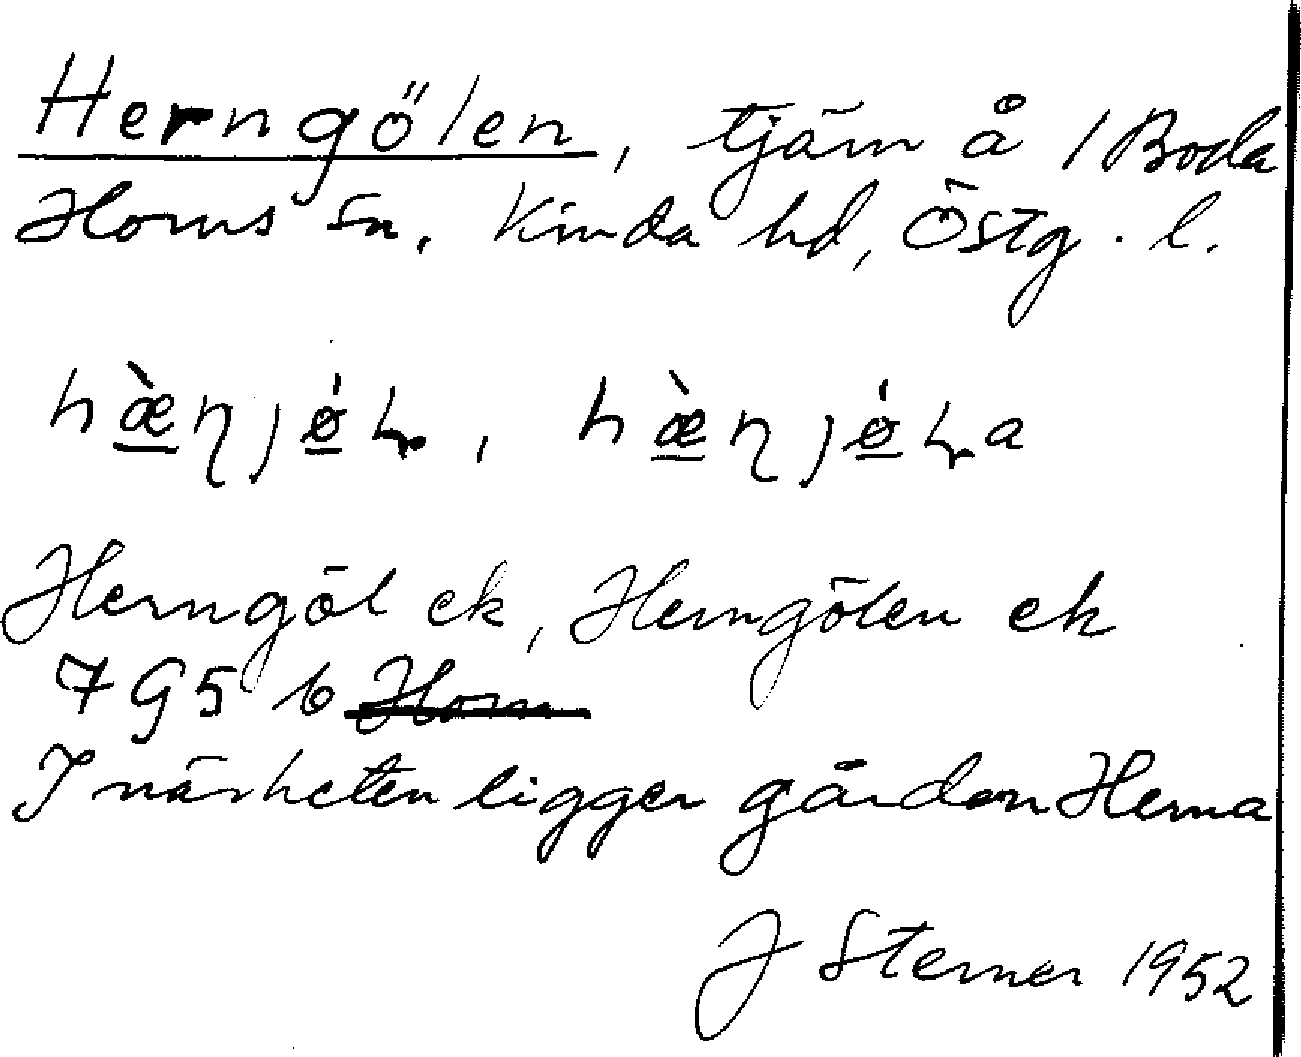 Herngölen, tjärn å 1 Boda
Horns sn, Kinda hd, Östg. l.
Herngöl ek, Herngölen ek
7 G 5 b Horn
I närheten ligger gården Herna
J Sterner 1952